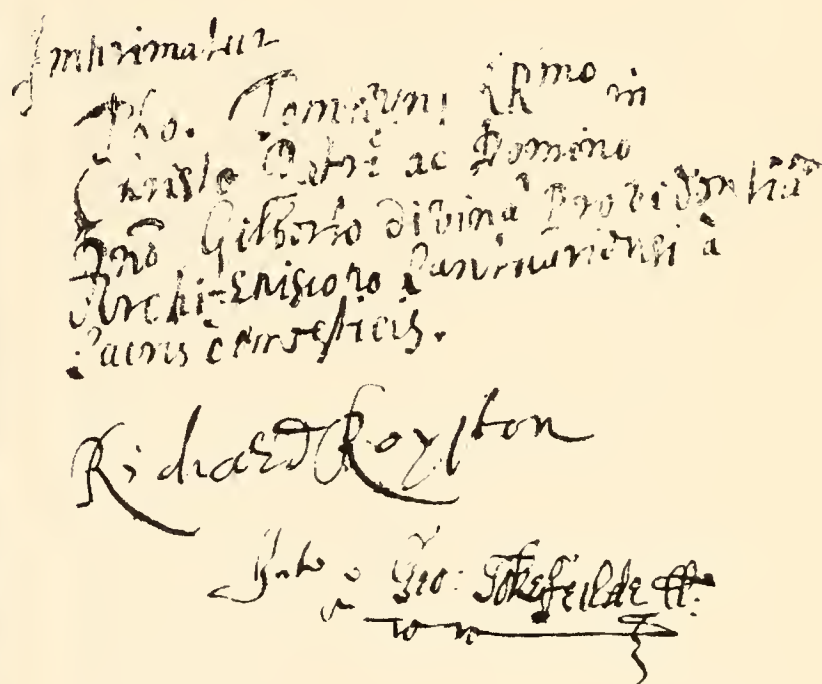 Imprimatur
Tho. Tomkyns RRmo in
Christo Patri ac Domino
Dno Gilberto divinâ Providentiâ
Archi-Episcopo Cantuariensi à
Sacris domesticis.
Richard Royston
Geo: Tokefeilde